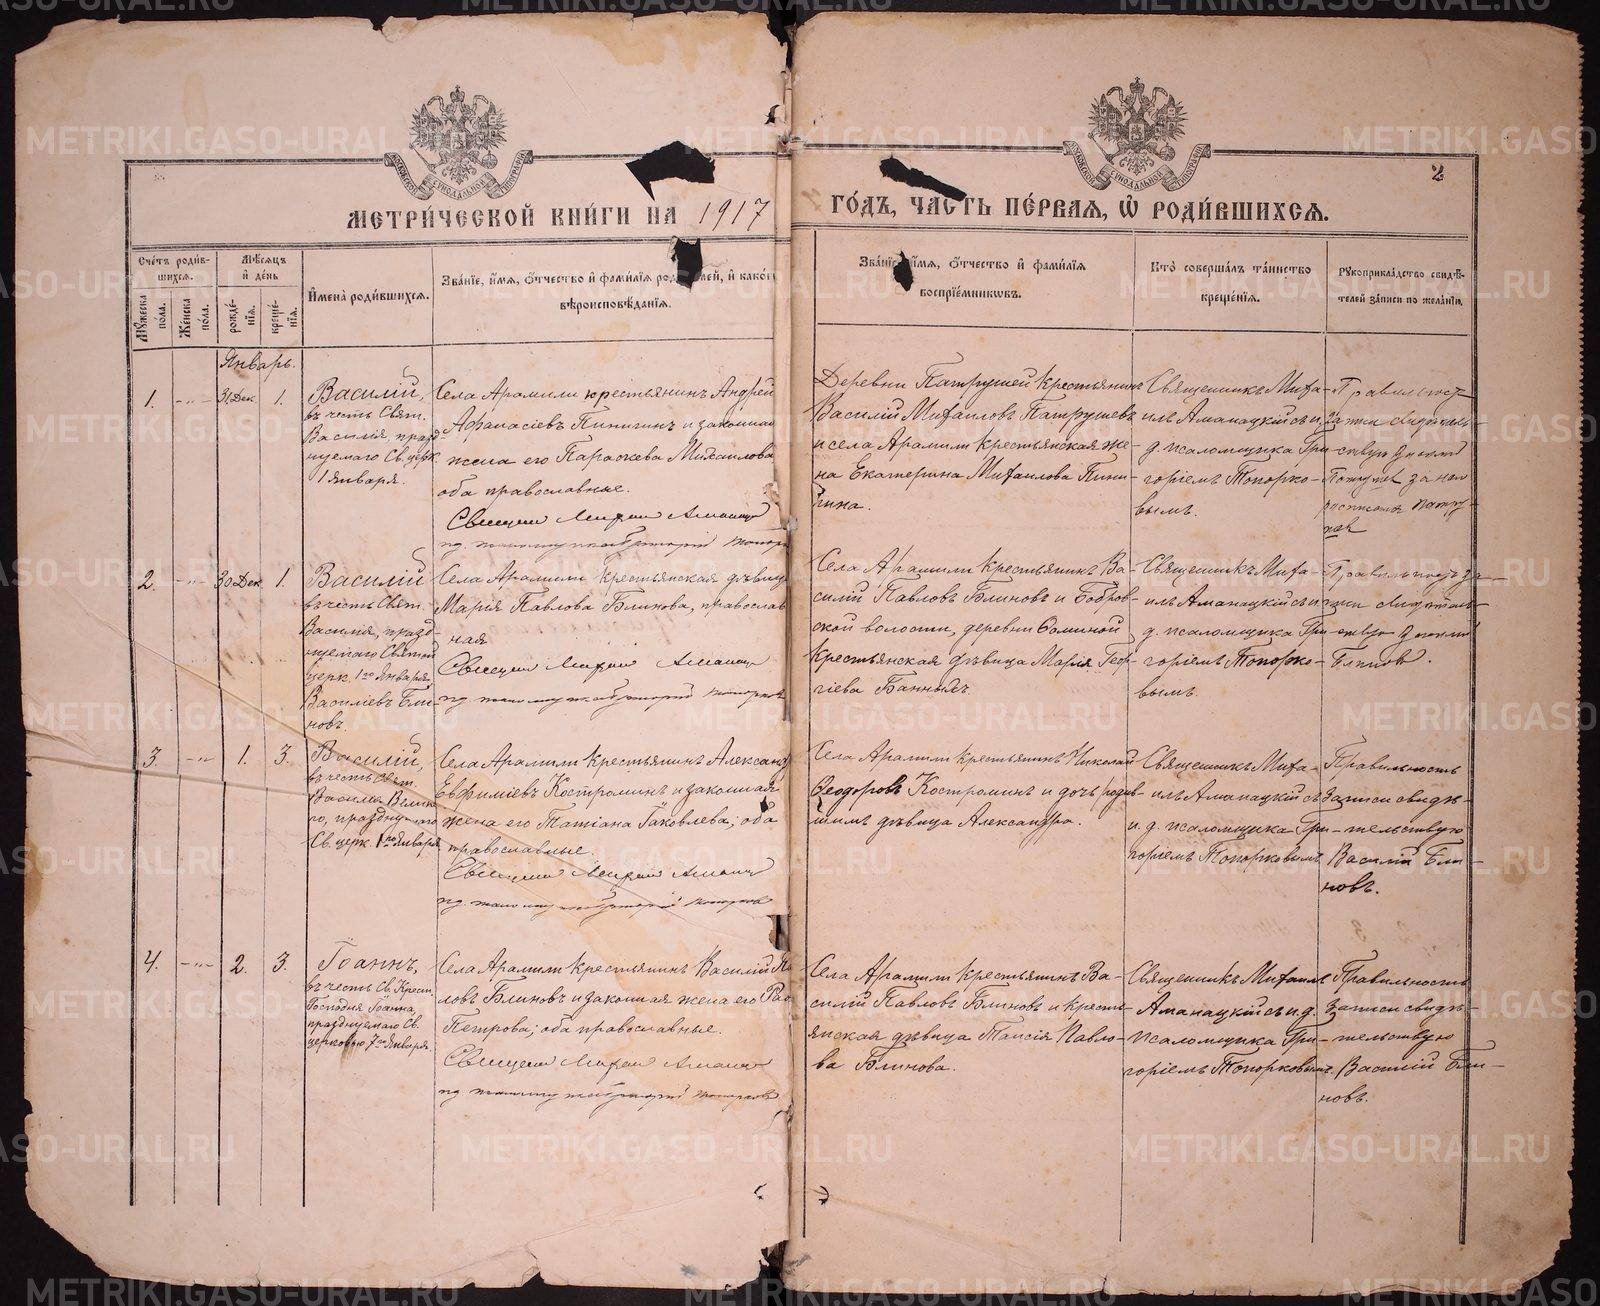 МЕТРИ́ЧЕСКОЙ КНИ́ГИ НА 1917
ГО́ДЪ, ЧА́СТЬ ПЕ́РВАЯ, Ѡ РОДИ́ВШИХСЯ.
2
Сче́тъ роди́в-
шихся.
Мѣ́сяцъ
и де́нь
Мꙋ́жеска
по́ла.
Же́нска
по́ла.
рожде́-
нїя.
креще́-
нїя.
И҆мена̀ роди́вшихся.
Зва́нїе, и҆́мя, ѻ҆́тчество и҆ фами́лїя
вѣроисповѣ́данїя.
Зва́нїе, и҆́мя, ѻ҆́тчество и҆ фами́лїя
воспрїе́мникѡвъ.
Кто̀ соверша́лъ та́инство
креще́нїя.
Рꙋкоприкла́дство свидѣ́-
телей за́писи по жела́нїю.
Январь.
1. -„- 31 Дек. 1.
Василій,
въ честь Свят.
Василія, празд-
нуемаго Св. церк.
1 Января.
Села Арамили крестьянинъ Андрей
Афанасіевъ Пинигинъ и законная
жена его Параскева Михаилова
оба православные.
Деревни Патрушей крестьянинъ
Василій Михаиловъ Патрушевъ
и села Арамили крестьянская же-
на Екатерина Михаилова Пини-
гина.
Священникъ Миха-
илъ Аманацкій съ и.
д. псаломщика Гри-
горіемъ Топорко-
вымъ.
2. -„- 30 Дек. 1.
Василій
въ честь Свят.
Василія, празд-
нуемаго Святой
церк. 1го Января
Василіевъ Бли-
новъ.
Села Арамили крестьянская дѣвица
Марія Павлова Блинова, православ
ная
Села Арамили крестьянинъ Ва-
силій Павловъ Блиновъ и Бобров-
ской волости, деревни Фоминой
крестьянская дѣвица Марія Геор-
гіева Банныхъ.
Священникъ Миха-
илъ Аманацкій съ и.
д. псаломщика Гри-
горіемъ Топорко-
вымъ.
Блиновъ.
3. -„- 1. 3.
Василій,
въ честь Свят.
Василія Велика-
го, празднуемаго
Св. церк. 1го Января
Села Арамили крестьянинъ Александ
Евфиміевъ Костроминъ и законная
жена его Татіана Іаковлева; оба
православные.
Села Арамили крестьянинъ Николай
Ѳеодоровъ Костроминъ и дочь родив-
шихъ дѣвица Александра.
Священникъ Миха-
илъ Аманацкій съ
и. д. псаломщика Гри-
горіемъ Топорковымъ
Правильность
записи свидѣ-
тельствую
Василій Бли-
новъ.
4. -„- 2. 3.
Іоаннъ,
въ честь Св. Крест.
Господня Іоанна,
празднуемаго Св.
церковью 7го Января.
Села Арамили крестьянинъ Василій Па
ловъ Блиновъ и законная жена его
Петрова; оба православные.
Села Арамили крестьянинъ Ва-
силій Павловъ Блиновъ и кресть-
янская дѣвица Таисія Павло-
ва Блинова.
Священникъ Михаилъ
Аманацкій съ и. д.
псаломщика Гри-
горіемъ Топорковымъ.
Правильность
записи свидѣ-
тельствую
Василій Бли-
новъ.
METRIKI.GASO-URAL.RU